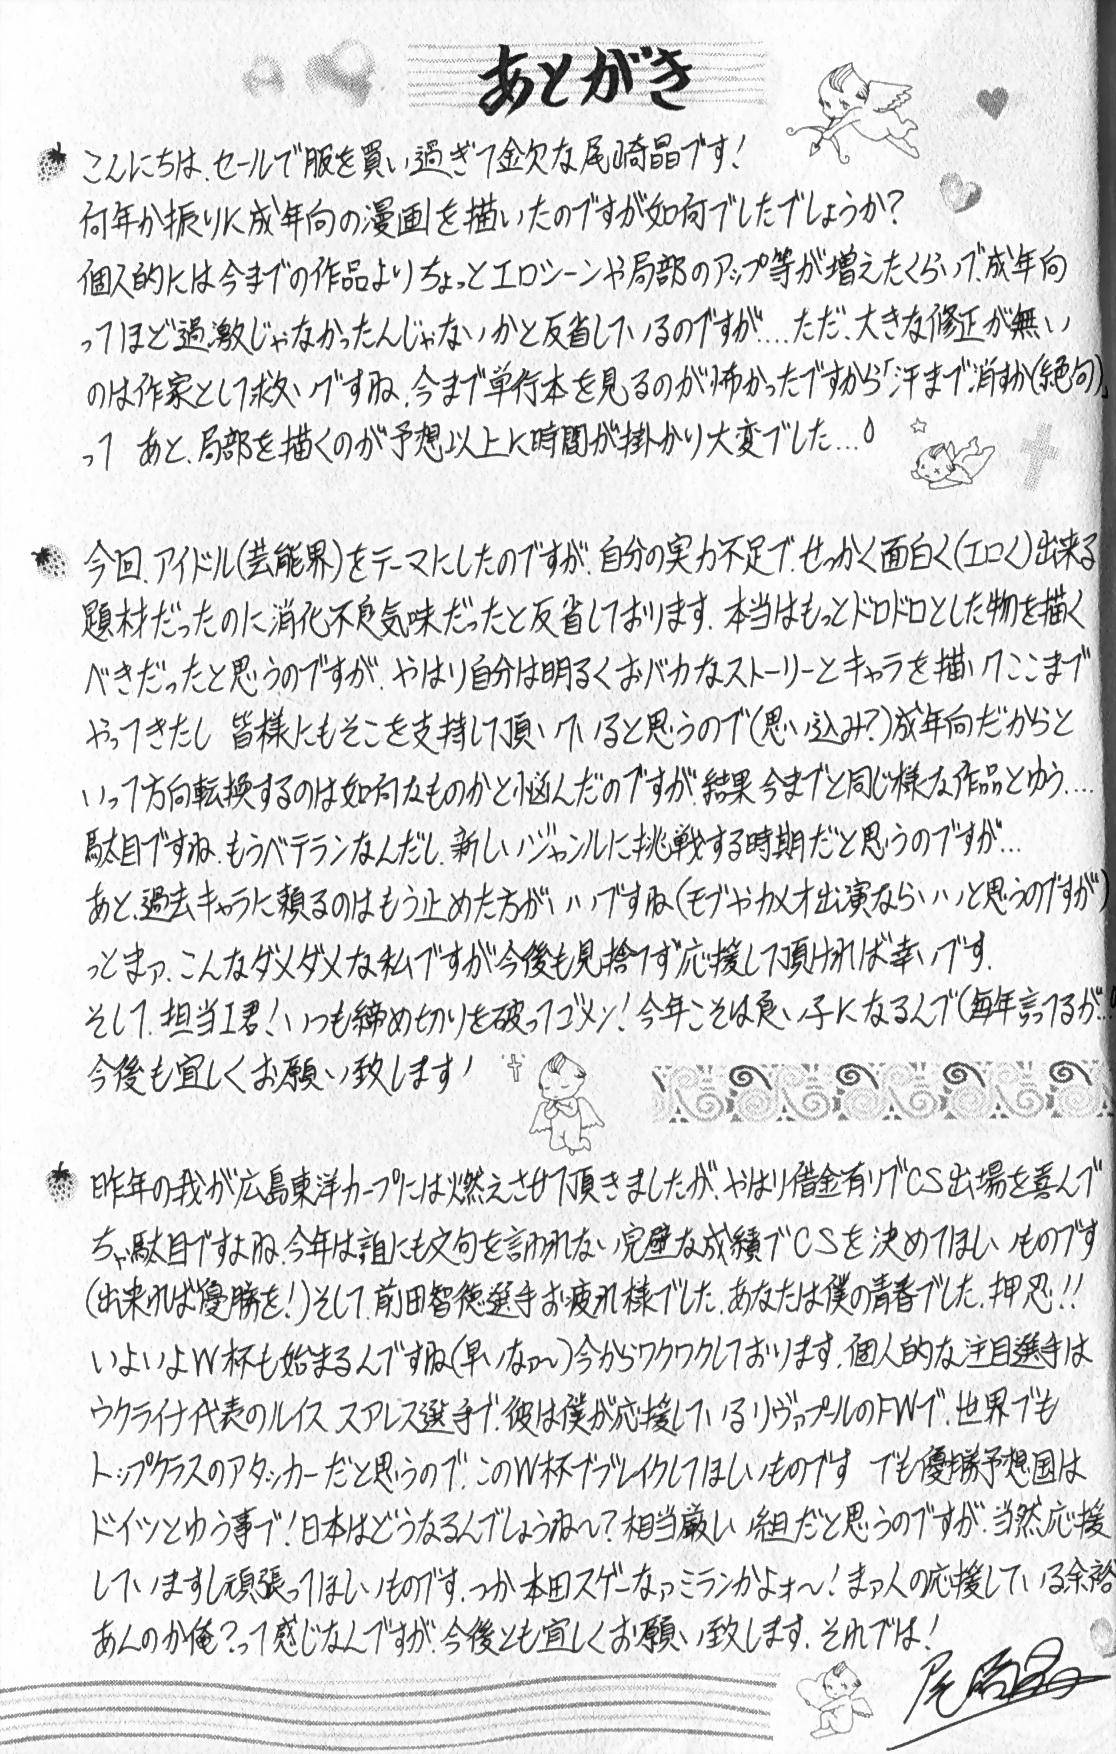 あとがき
こんにちは、セールで服を買い過ぎて金欠な尾崎晶です!
何年か振りに成年向の漫画を描いたのですが如何でしたでしょうか?
個人的には今までの作品よりちょっとエロシーンや局部のアップ等が増えたくらいで、成年向
ってほど過激じゃなかったんじゃないかと反省しているのですが....ただ、大きな修正が無い
のは作家として救いですね、今まで単行本を見るのが怖かったですから「汗まで消すか(絶句)」
って あと、局部を描くのが予想以上に時間が掛かり大変でした...
今回、アイドル(芸能界)をテーマにしたのですが、自分の実力不足で、せっかく面白く(エロく)出来る
題材だったのに消化不良気味だったと反省しております、本当はもっとドロドロとした物を描く
べきだったと思うのですが、やはり自分は明るくおバカなストーリーとキャラを描いてここまで
やってきたし 皆様にもそこを支持して頂いていると思うので(思い込み?)成年向だからと
いって方向転換するのは如何なものかと悩んだのですが、結果今までと同じ様な作品とゆう....
駄目ですね、もうベテランなんだし、新しいジャンルに挑戦する時期だと思うのですが...
あと、過去キャラに頼るのはもう止めた方がいいですね(モブやカメオ出演ならいいと思うのですが)
っとまァ、こんなダメダメな私ですが今後も見捨てず応援して頂ければ幸いです、
そして、担当I君!いつも締め切りを破ってゴメン!今年こそは良い子になるんで(毎年言ってるが..)
今後も宜しくお願い致します!
昨年の我が広島東洋カープには燃えさせて頂きましたが、やはり借金有りでCS出場を喜んで
ちゃ駄目ですよね、今年は誰にも文句を言われない完璧な成績でCSを決めてほしいものです
(出来れば優勝を!)そして、前田智徳選手お疲れ様でした、あなたは僕の青春でした、押忍!!
いよいよW杯も始まるんですね(早いなァ〜)今からワクワクしております、個人的な注目選手は
ウクライナ代表のルイス スアレス選手で、彼は僕が応援しているリヴァプールのFWで、世界でも
トップクラスのアタッカーだと思うので、このW杯でブレイクしてほしいものです でも優勝予想国は
ドイツとゆう事で!日本はどうなるんでしょうね〜?相当厳しい組だと思うのですが、当然応援
していますし頑張ってほしいものです、つか本田スゲーなァミランかよォ〜!まァ人の応援している余裕
あんのか俺?って感じなんですが、今後とも宜しくお願い致します、それでは!
尾崎晶